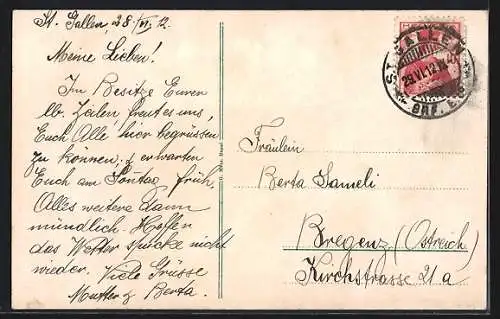 St. Gallen, 28/VI. 12.
Meine Lieben!
Im Besitze Euren
lb. Zeilen freut es uns,
Euch Alle hier begrüssen
zu können, & erwarten
Euch am Sontag früh.
Alles weitere dann
mündlich. Hoffen
das Wetter
wieder. Viele Grüsse
Mutter & Berta.
ST. GALLEN
29.VI.12.
BRF. EXP.
Fräulein
Berta Sameli
Bregenz (Ostreich)
Kirchstrasse 21a